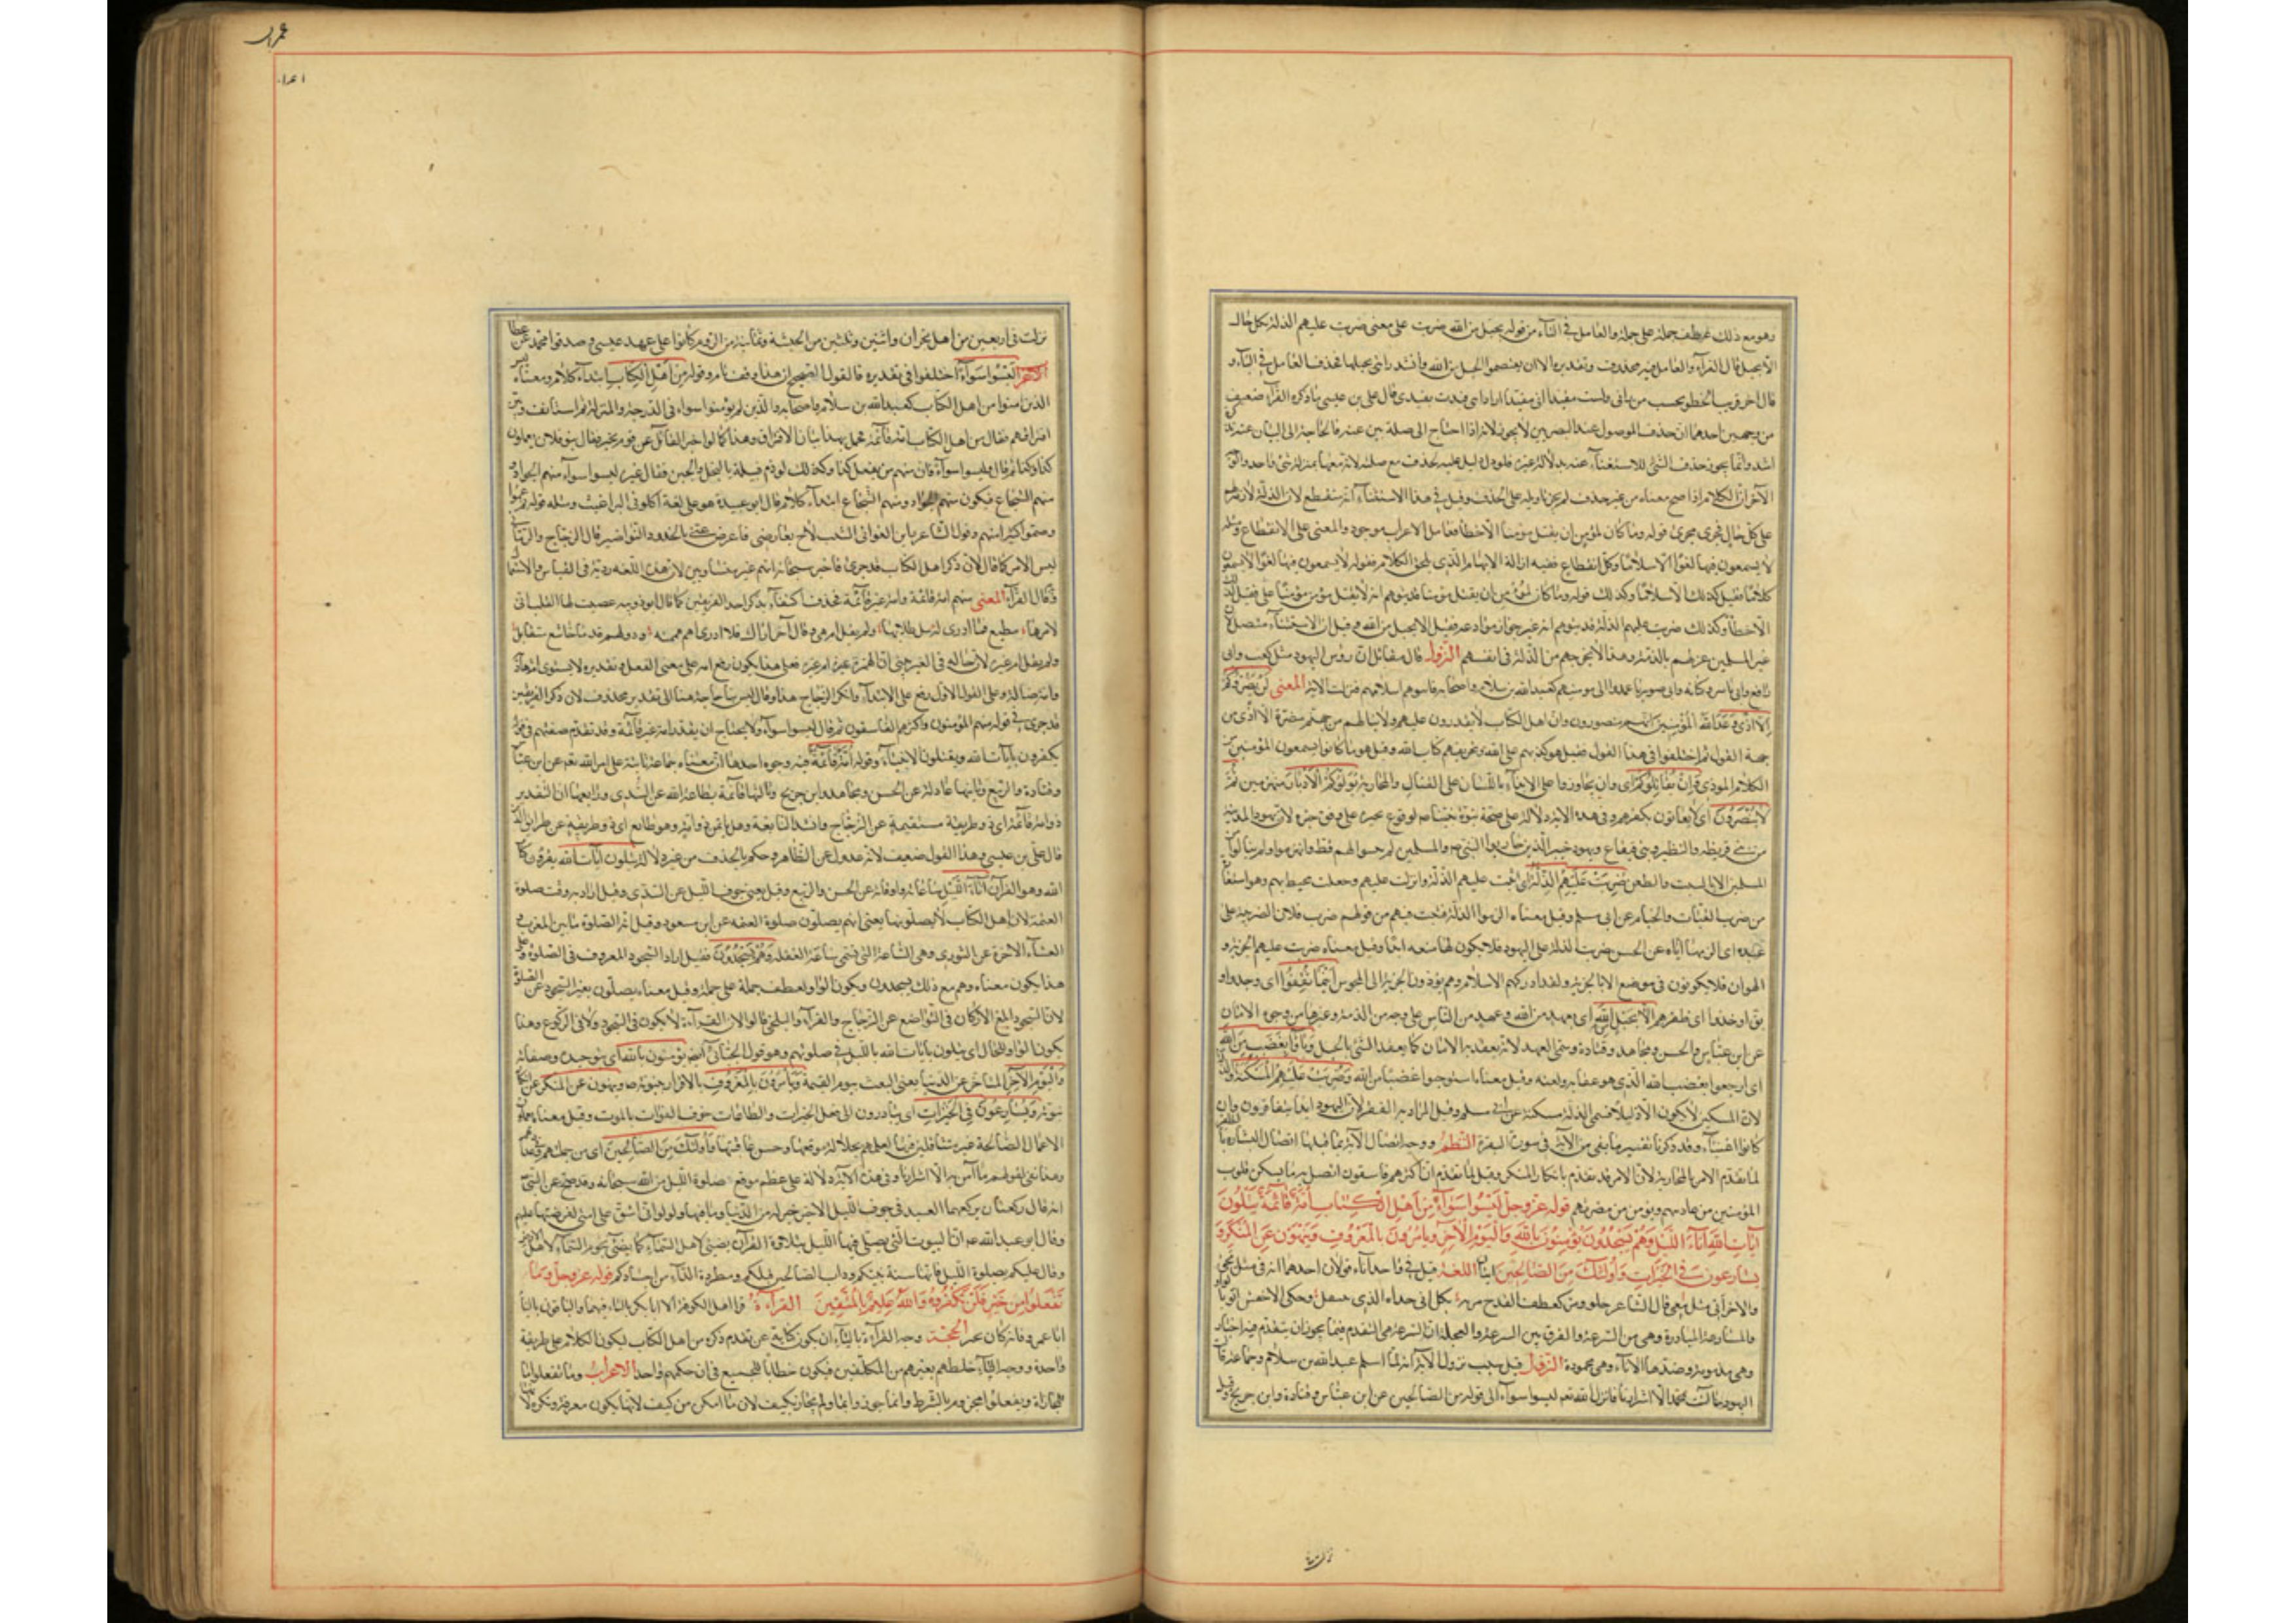 وهو مع ذلك عطف جملة على جملة والعامل في الباء من قوله بحبل من الله ضربت على معنى ضربت عليهم الذلة بكل حال
الا بحبل قال الفراء والعامل فيه محذوف وتقديره الا ان يعتصموا بحبل من الله وانشد راتني بحبليها فحذف العامل في الباء و
قال اخر قريب الخطو يحسب من راني ولست مقيدا اني بقيد اراد اني قيدت بقيدي قال علي بن عيسى ما ذكره الفراء ضعيف
من وجهين احدهما ان حذف الموصول عند البصريين لا يجوز لانه اذا احتاج الى صلة تبين عنه فالحاجة الى البيان عنه بذكره
اشد وانما يجوز حذف الشئ للاستغناء عنه بدلالة غيره فلو دل دليل عليه لحذف مع صلته لانه معها بمنزلة شئ واحد والوجه
الآخر ان الكلام اذا صح معناه من غير حذف لم يجز تاويله على الحذف وقيل في هذا الاستثناء انه منقطع لان الذلة لازمة لهم
على كل حال فجرى مجرى قوله وما كان لمؤمن ان يقتل مؤمنا الا خطأ فعامل الاعراب موجود والمعنى على الانقطاع ومثله
لا يسمعون فيها لغوا الا سلاما وكل انقطاع ففيه ازالة الابهام الذي يلحق الكلام فقوله لا يسمعون فيها لغوا
الا خطأ وكذلك ضربت عليهم الذلة
النزول قال مقاتل ان رؤس اليهود مثل كعب وابي
رافع وابي ياسر وكنانة وابن صوريا عمدوا الى مؤمنيهم كعبد الله بن سلام واصحابه فانبوهم لاسلامهم فنزلت الآية المعنى لن يضروكم
الا اذى وعد الله المؤمنين انهم منصورون وان اهل الكتاب لا يقدرون عليهم ولا ينالهم من جهتهم مضرة الا اذى من
جهة القول ثم اختلفوا في هذا القول فقيل هو كذبهم على الله وتحريفهم كتاب الله وقيل هو ما كانوا يسمعون المؤمنين من
الكلام الموذي وان يقاتلوكم اى وان يجاوزوا عن الايذاء باللسان الى القتال والمحاربة يولوكم الادبار منهزمين ثم
لا ينصرون اى لا يعانون بكفرهم وفي هذه الآية دلالة على صحة نبوة نبينا ص لوقوع مخبره على وفق خبره لان يهود المدينة
من بني قريظة والنضير وبني قينقاع ويهود خيبر الذين حاربوا النبي ص والمسلمين لم يثبتوا لهم قط وانهزموا ولم ينالوا من
المسلمين الا بالسب والطعن ضربت عليهم الذلة اى اثبت عليهم الذلة وانزلت عليهم وجعلت محيطة بهم وهو استعارة
من ضرب القباب والخيام عن ابي مسلم وقيل معناه الزموا الذلة فثبتت فيهم من قولهم ضرب فلان الضريبة على
عبده اى الزمها اياه عن الحسن ضربت الذلة على اليهود فلا يكون لها منعة ابدا وقيل معناه ضربت عليهم الجزية و
الهوان فلا يكونون في موضع الا بالجزية ولقد ادركهم الاسلام وهم يؤدون الجزية الى المجوس اينما ثقفوا اى وجدوا و
يق اخذوا اى ظفر بهم الا بحبل من الله اى بعهد من الله وعهد من الناس على وجه من الذمة وغيرها من وجوه الامان
عن ابن عباس والحسن ومجاهد وقتادة وسمي العهد لانه يعقد به الامان كما يعقد الشئ بالحبل وباؤا بغضب من الله
اى ارجعوا بغضب الله الذي هو عقابه ولعنه وقيل معناه استوجبوا غضبا من الله وضربت عليهم المسكنة
لان المسكين لا يكون الا ذليلا فسمي الذلة مسكنة عن ابي مسلم وقيل المراد به الفقر لان اليهود ابدا يتفاقرون وان
كانوا اغنياء وقد ذكرنا تفسير ما بقي من الآية في سورة البقرة النظم ووجه اتصال الآية بما قبلها اتصال البشارة
لما تقدم الامر بالمحاربة لان الامر قد تقدم بانكار المنكر وقيل لما تقدم ان اكثرهم فاسقون اتصل به ما يسكن قلوب
المؤمنين من عاديتهم ويؤمن من مضرتهم قوله عز وجل ليسوا سواء من اهل الكتاب امة قائمة يتلون
آيات الله آناء الليل وهم يسجدون يؤمنون بالله واليوم الآخر ويامرون بالمعروف وينهون عن المنكر و
يسارعون في الخيرات واولئك من الصالحين آيتان اللغة قيل في واحد آناء قولان احدهما انه اني مثل نحي
والآخر اني مثل معي قال الشاعر حلو ومر كعطف القدح مرته بكل اني حداه الليل ينتعل وحكى الاخفش
والمسارعة المبادرة وهي من السرعة والفرق بين السرعة والعجلة ان السرعة هي التقدم فيما يجوز ان يتقدم فيه
وهي محمودة النزول قيل سبب نزول الآية انه لما اسلم عبد الله بن سلام وجماعة قالت
اليهود ما آمن بمحمد الا اشرارنا فانزل الله تعالى ليسوا سواء الى قوله من الصالحين عن ابن عباس وقتادة وابن جريج وقيل
نزلت
عمران
نزلت في اربعين من اهل نجران واثنين وثلثين من الحبشة وثمانية من الروم كانوا على عهد عيسى وصدقوا محمدا عن عطا
الاعراب ليسوا سواء اختلفوا في تقديره فالقول الصحيح ان هذا وقف تام وقوله من اهل الكتاب ابتداء كلام ومعناه ليس
الذين آمنوا من اهل الكتاب كعبد الله بن سلام واصحابه والذين لم يؤمنوا سواء في الدرجة والمنزلة ثم استانف وبين
افتراقهم فقال من اهل الكتاب امة قائمة فحصل بهذا بيان الافتراق وهذا كما لو اخبر القائل عن قوم بخبر فقال بنو فلان يعملون
كذا وكذا ثم قال ليسوا سواء فان منهم من يفعل كذا وكذلك لو ذم قبيلة بالبخل والجبن فقال غيره ليسوا سواء منهم الجواد و
منهم الشجاع فيكون منهم الجواد ومنهم الشجاع ابتداء كلام قال ابو عبيدة هو على لغة اكلوني البراغيث ومثله قوله ثم عموا
وصموا كثير منهم وقول الشاعر راين الغواني الشيب لاح بعارضي فاعرضن عني بالخدود النواضر قال الزجاج والرماني
ليس الامر كما قال لان ذكر اهل الكتاب قد جرى فاخبر سبحانه انهم غير متساوين لان هذه اللغة ردية في القياس والاستعمال
وقال الفراء المعنى منهم امة قائمة وامة غير قائمة فحذف اكتفاء بذكر احد الفريقين كما قال ابو ذويب عصيت اليها القلب اني
لامرها مطيع فما ادري ارشد طلابها ولم يقل ام هي وقال آخر اراك فلا ادري اهم هممته وذو الهم قدما خاشع متضائل
ولم يقل ام غيره لان حاله في التغير ينبئ ان الهم غيره ام غيره فعلى هذا يكون رفع امة على معنى الفعل وتقديره لا يستوى امة هادية
وامة ضالة وعلى القول الاول رفع على الابتداء وانكر الزجاج هذا وقال ليس بنا حاجة هنا الى تقدير محذوف لان ذكر الفريقين
قد جرى في قوله منهم المؤمنون واكثرهم الفاسقون ثم قال ليسوا سواء ولا يحتاج ان يقدر امة غير قائمة وقد تقدم صفتهم في قوله
يكفرون بآيات الله ويقتلون الانبياء وقوله امة قائمة فيه وجوه احدها ان معناه جماعة ثابتة على امر الله تعالى عن ابن عباس
وقتادة والربيع وثانيها عادلة عن الحسن ومجاهد وابن جريج وثالثها قائمة بطاعة الله عن السدي ورابعها ان التقدير
ذو امة قائمة اى ذو طريقة مستقيمة عن الزجاج وانشد النابغة وهل ياثمن ذو امة وهو طائع اى ذو طريقة من طرائق الدين
قال علي بن عيسى وهذا القول ضعيف لانه عدول عن الظاهر وحكم بالحذف من غير دلالة يتلون آيات الله يقرؤن كتاب
الله وهو القرآن آناء الليل ساعاته واوقاته عن الحسن والربيع وقيل يعني جوف الليل عن السدي وقيل اراد به وقت صلوة
العتمة لان اهل الكتاب لا يصلونها يعني انهم يصلون صلوة العتمة عن ابن مسعود وقيل انه الصلوة ما بين المغرب و
العشاء الآخرة عن الثوري وهي الساعة التي تسمى ساعة الغفلة وهم يسجدون فقيل اراد السجود المعروف في الصلوة وعلى
هذا يكون معناه وهم مع ذلك يسجدون ويكون الواو لعطف جملة على جملة وقيل معناه يصلون فعبر بالسجود عن الصلوة
لان السجود ابلغ الاركان في التواضع عن الزجاج والفراء والبلخي قالوا لان القراءة لا يكون في السجود ولا في الركوع وهذا
يكون الواو للحال اى يتلون بآيات الله بالليل في صلوتهم وهو قول الجبائي ايضا يؤمنون بالله اى بتوحيده وصفاته
واليوم الآخر المتاخر عن الدنيا يعني البعث يوم القيمة ويامرون بالمعروف بالاقرار بنبوة محمد ص وينهون عن المنكر عن انكار
نبوته ويسارعون في الخيرات اى يبادرون الى فعل الخيرات والطاعات خوف الفوات بالموت وقيل معناه يعملون
الاعمال الصالحة غير متثاقلين فيها لعلمهم بجلالة موقعها وحسن عاقبتها واولئك من الصالحين اى من جملتهم وفي عدادهم
وهذا نفي لقولهم ما آمن به الا اشرارنا وفي هذه الآية دلالة على عظم موقع صلوة الليل من الله سبحانه وقد صح عن النبي ص
انه قال ركعتان يركعهما العبد في جوف الليل الاخير خير له من الدنيا وما فيها ولولا ان اشق على امتي لفرضتهما عليهم
وقال ابو عبد الله ع ان البيوت التي يصلى فيها الليل بتلاوة القرآن يضيئ لاهل السماء كما يضيئ نجوم السماء لاهل الارض
وقال عليكم بصلوة الليل فانها سنة نبيكم وداب الصالحين قبلكم ومطردة الداء من اجسادكم قوله عز وجل وما
تفعلوا من خير فلن تكفروه والله عليم بالمتقين القراءة قرا اهل الكوفة الا ابا بكر بالياء فيهما والباقون بالتاء
الا ابا عمرو فانه كان يخير الحجة وجه القراءة بالياء ان يكون كناية عن تقدم ذكره من اهل الكتاب ليكون الكلام على طريقة
واحدة ووجه التاء خلطهم بغيرهم من المكلفين فيكون خطابا للجميع في ان حكمهم واحد الاعراب وما تفعلوا ما
للمجازاة وتفعلوا مجزوم بالشرط وانما جوزوا بما ولم يجاز بكيف لان ما امكن من كيف لانها يكون معرفة ونكرة